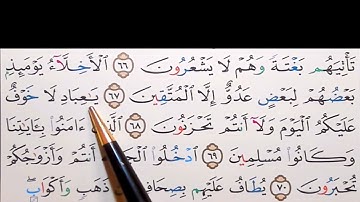 تَأْتِيَهُم بَغْتَةً وَهُمْ لَا يَشْعُرُونَ ٦٦ ٱلْأَخِلَّآءُ يَوْمَئِذٍۭ
بَعْضُهُمْ لِبَعْضٍ عَدُوٌّ إِلَّا ٱلْمُتَّقِينَ ٦٧ يَـٰعِبَادِ لَا خَوْفٌ
عَلَيْكُمُ ٱلْيَوْمَ وَلَآ أَنتُمْ تَحْزَنُونَ ٦٨ ٱلَّذِينَ ءَامَنُوا۟ بِـَٔايَـٰتِنَا
وَكَانُوا۟ مُسْلِمِينَ ٦٩ ٱدْخُلُوا۟ ٱلْجَنَّةَ أَنتُمْ وَأَزْوَٰجُكُمْ
تُحْبَرُونَ ٧٠ يُطَافُ عَلَيْهِم بِصِحَافٍ مِّن ذَهَبٍ وَأَكْوَابٍ ۖ